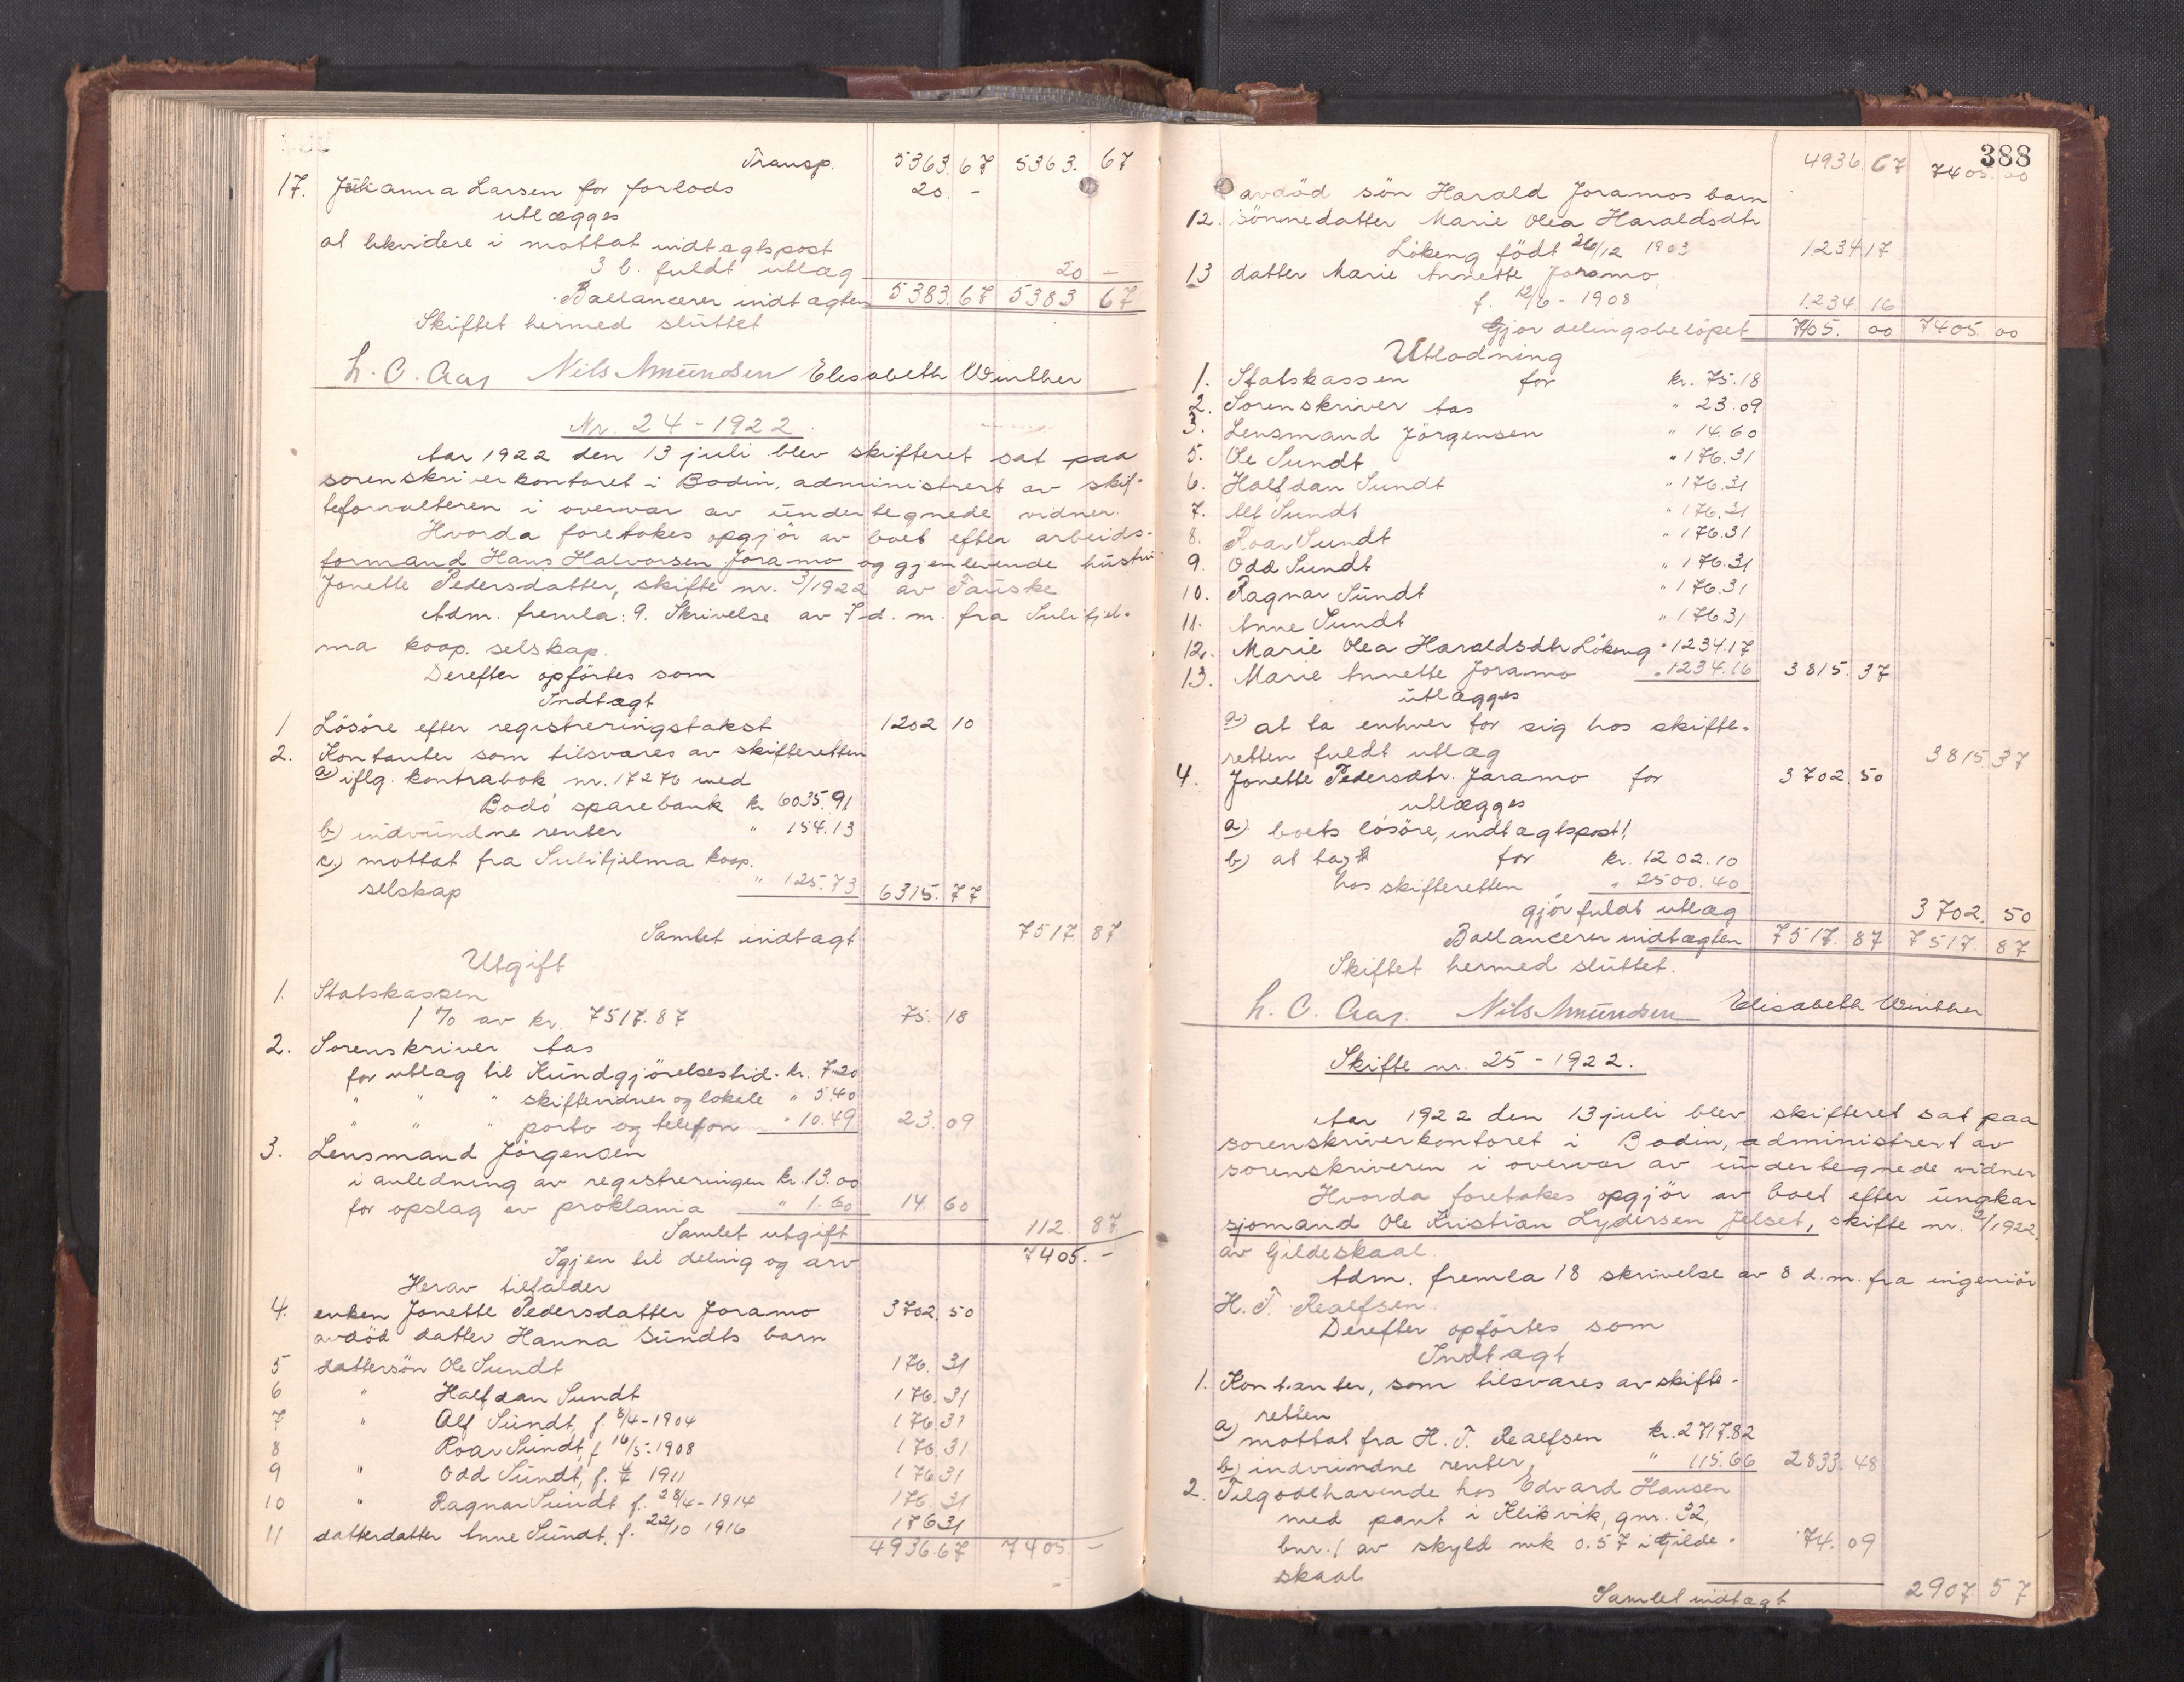 Transp. 5363.67 5363.67
17. Johanna Larsen for forlods 20. -
utlægges
at likvidere i mottat indtægtspost
3 b. fuldt utlæg 20 -
Ballancerer indtægten 5383.67 5383 67
Skiftet hermed sluttet
L. C. Aas Nils Amundsen Elisabeth Winther
Nr. 24 - 1922
Aar 1922 den 13 juli blev skifteret sat paa
sorenskriverkontoret i Bodin, administrert av skif-
teforvalteren i overvær av undertegnede vidner.
Hvorda foretokes opgjör av boet efter arbeids-
formand Hans Halvorsen Joramo og gjenlevende hustru
Jonette Pedersdatter, skifte nr. 3/1922 av Fauske
Adm. fremla: 9. Skrivelse av 7 d. m. fra Sulitjel-
ma koop. selskap.
Derefter opförtes som
Indtægt
1 Lösöre efter registreringstakst 1202 10
2. Kontanter som tilsvares av skifteretten
a) iflg. kontrabok nr. 17276 med
Bodö sparebank kr 6035.91
b) indvundne renter " 154.13
c.) mottat fra Sulitjelma koop.
selskap " 125.73 6315.77
Samlet indtægt 7517.87
Utgift
1. Statskassen
1 % av kr. 7517.87 75.18
2. Sorenskriver Aas
for utlæg til Kundgjörelsestid. kr. 7.20
" " " skiftevidner og lokale " 5.40
" " " porto og telefon " 10.49 23.09
3. Lensmand Jörgensen
i anledning av registreringen kr. 13.00
for opslag av proklama " 1.60 14.60
Samlet utgift 112.87
Igjen til deling og arv 7405.-
Herav tilfalder
4. enken Jonette Pedersdatter Joramo 3702.50
avdöd datter Hanna Sundts barn
5 dattersön Ole Sundt 176.31
6 " Halfdan Sundt 176.31
7 " Alf Sundt, f. 8/4-1904 176.31
8 Roar Sundt, f 16/5-1908 176.31
9 " Odd Sundt, f. 1911 176 31
10 " Ragnar Sundt f. 28/4-1914 176.31
11 datterdatter Anne Sundt. f. 22/10 1916 176 31
4936.67 7405. -
388
4936.67 7405.00
avdöd sön Harald Joramos barn
12. sönnedatter Marie Olea Haraldsdtr
Lökeng födt 26/12 1903 1234 17
13 datter Marie Annette Joramo,
f. 12/6 - 1908 1234.16
Gjör delingsbelöpet 7405.00 7405.00
Utlodning
1. Statskassen for kr. 75.18
2. Sorenskriver Aas " 23.09
3. Lensmand Jörgensen " 14.60
5. Ole Sundt " 176.31
6. Halfdan Sundt " 176.31
7. Alf Sundt " 176.31
8. Roar Sundt " 176.31
9. Odd Sundt " 176.31
10. Ragnar Sundt " 176.31
11. Anne Sundt " 176 31
12. Marie Olea Haraldsdtr Lökeng " 1234.17
13. Marie Annette Joramo " 1234.16 3815.37
utlægges
a) at ta enhver for sig hos skifte-
retten fuldt utlæg 3815.37
4. Jonette Pedersdtr. Joramo for 3702.50
utlægges
a) boets lösöre, indtægtspost 1,
for kr. 1202.10
b) at ta
hos skifteretten " 2500.40
gjör fuldt utlæg 3702.50
Ballancerer indtægten 7517.87 7517.87
Skiftet hermed sluttet.
L. C. Aas. Nils Amundsen Elisabeth Winther
Skifte nr. 25 - 1922.
Aar 1922 den 13 juli blev skifteret sat paa
sorenskriverkontoret i Bodin, administrert av
sorenskriveren i overvær av undertegnede vidner
Hvorda foretokes opgjör av boet efter ungkar
sjomand Ole Kristian Lydersen Jelset, skifte nr. 2/1922.
av Gildeskaal.
Adm. fremla 18 skrivelse av 8 d.m. fra ingeniör
H. T. Realfsen.
Derefter opförtes som
Indtægt
1. Kontanter, som tilsvares av skifte-
retten
a) mottat fra H. T. Realfsen kr. 2717.82
b) indvundne renter " 115.66 2833.48
2. Tilgodehavende hos Edvard Hansen
med pant i Klikvik, gnr. 32,
bnr. 1 av skyld mk 0.57 i Gilde- 74.09
skaal
Samlet indtægt 2907.57